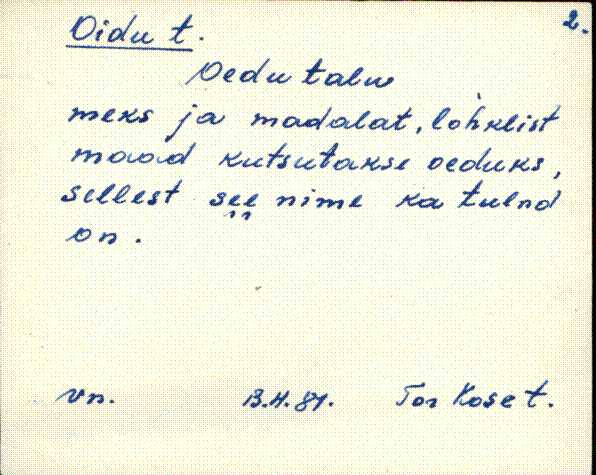 2.
Oidu t.
Oedu talu
meks ja madalat, lohklist
maad kutsutakse oeduks,
sellest see nime ka tulnd
on.
vn. B.H.81. Tor Kose t.